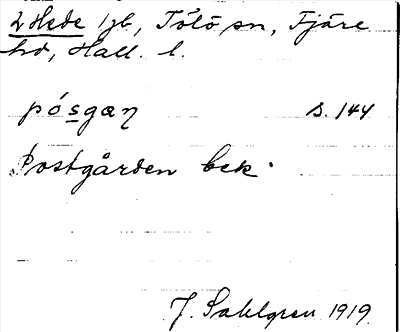 2 Hede 1 gb, Tölö sn, Fjäre
hd, Hall. l.
pósgæŋ s. 144
Postgården bek.
J. Sahlgren 1919